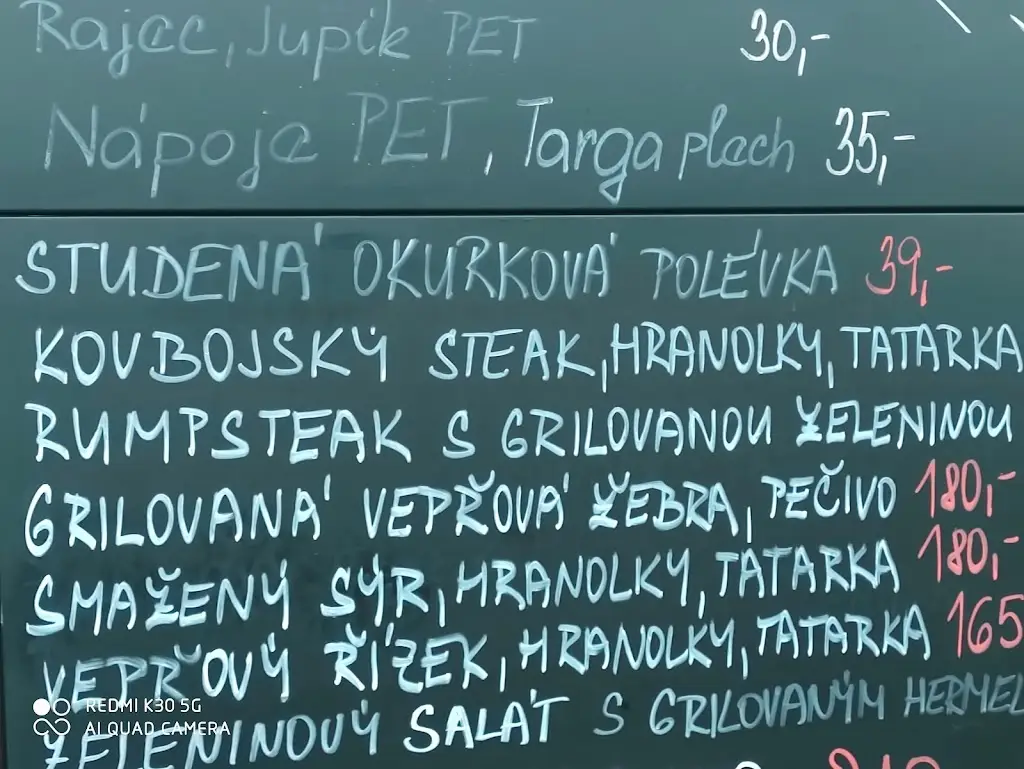 Rajec, Jupík PET 30,-
Nápoje PET, Targa plech 35,-
STUDENÁ OKURKOVÁ POLÉVKA 39,-
KOVBOJSKÝ STEAK, HRANOLKY, TATARKA
RUMPSTEAK S GRILOVANOU ZELENINOU
GRILOVANÁ VEPŘOVÁ ŽEBRA, PEČIVO 180,-
SMAŽENÝ SÝR, HRANOLKY, TATARKA 180,-
VEPŘOVÝ ŘÍZEK, HRANOLKY, TATARKA 165
ZELENINOVÝ SALÁT S GRILOVANÝM HERMEL
REDMI K30 5G
AI QUAD CAMERA